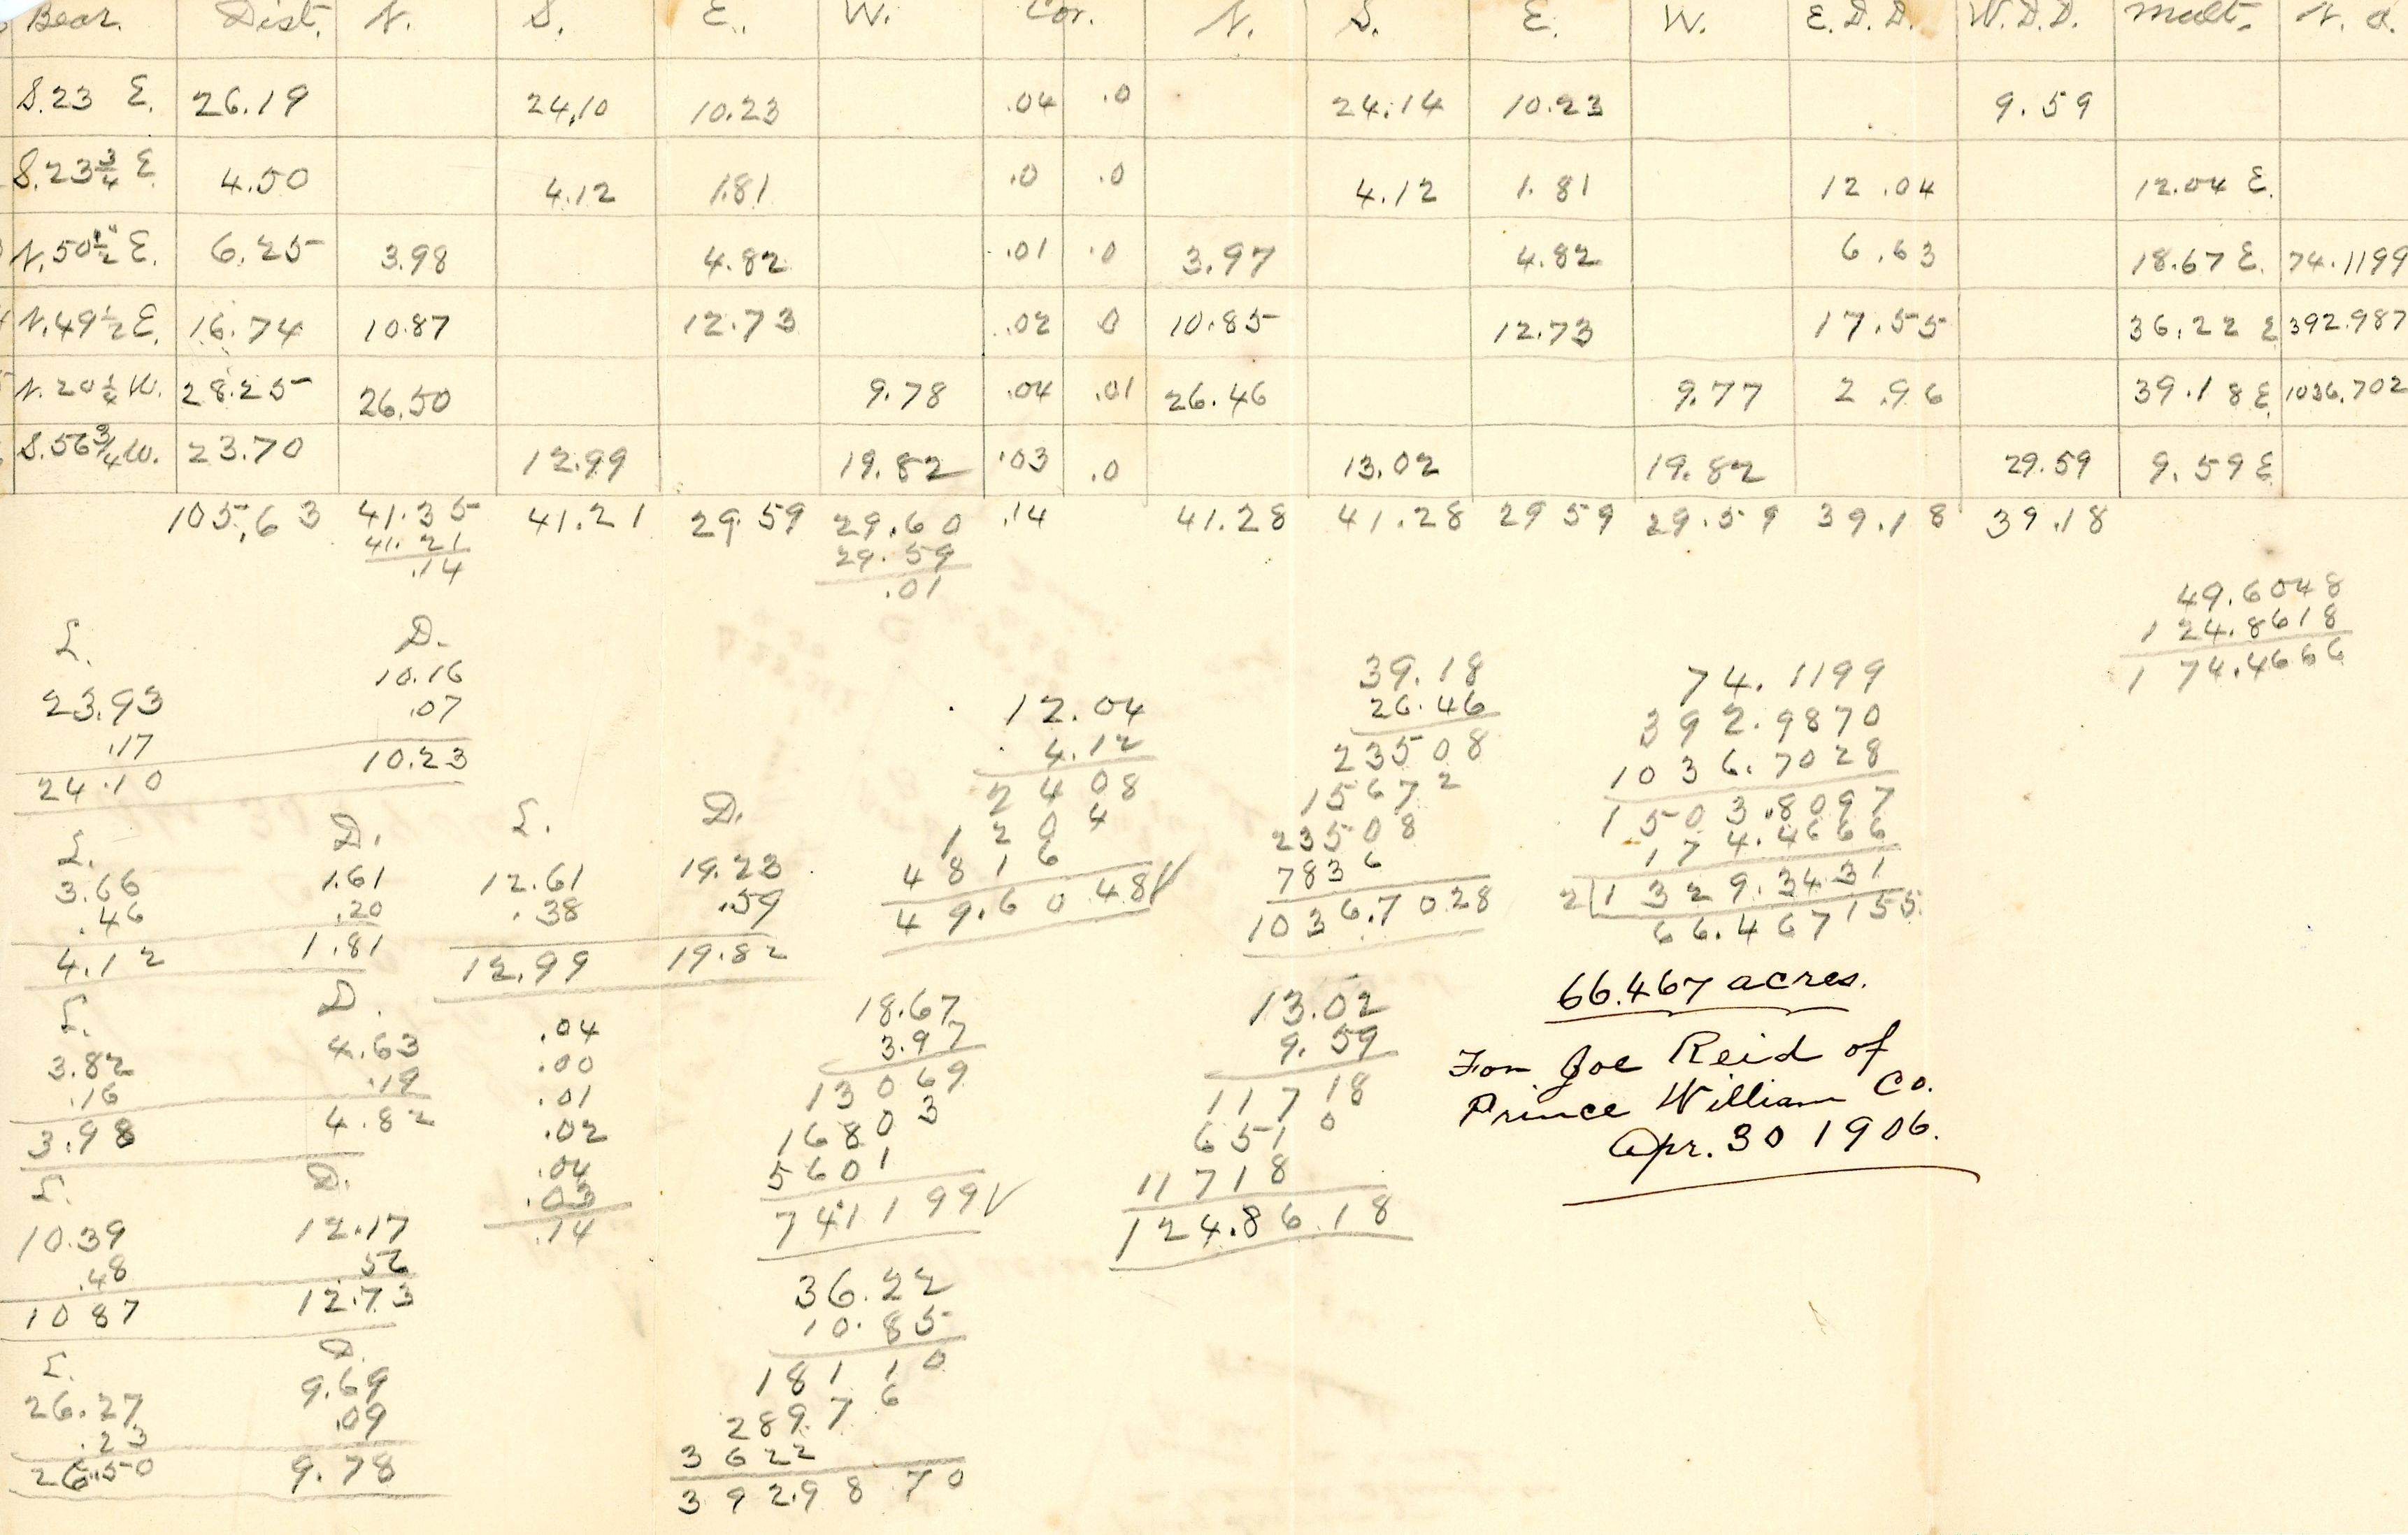 Bear. Dist. N. S. E. W. Cor. N. S. E. W. E.D.D. W.D.D. Mult.
S.23 E. 26.19 24.10 10.23 .04 .0 24.14 10.23 9.59
S.23 3/4 E. 4.50 4.12 1.81 .0 .0 4.12 1.81 12.04 12.04 E.
N.50 1/2 E. 6.25 3.98 4.82 .01 .0 3.97 4.82 6.63 18.67 E. 74.1199
N.49 1/2 E. 16.74 10.87 12.73 .02 .0 10.85 12.73 17.55 36.22 E 392.987
N.20 1/4 W. 28.25 26.50 9.78 .04 .01 26.46 9.77 2.96 39.18 E. 1036.702
S.56 3/4 W. 23.70 12.99 19.82 .03 .0 13.02 19.82 29.59 9.59 E
105.63 41.35 41.21 29.59 29.60 .14 41.28 41.28 29 59 29.59 39.18 39.18
41.21 29.59
.14 .01
49.6048
124.8618
174.4666
L. D.
23.93 10.16
.17 .07
24.10 10.23
L. D.
3.66 1.61
.46 .20
4.12 1.81
L. D.
3.82 4.63
.16 .19
3.98 4.82
L. D.
10.39 12.17
.48 .56
10 87 12.73
L. D.
26.27 9.69
.23 .09
26.50 9.78
L. D.
12.61 19.23
.38 .59
12.99 19.82
.04
.00
.01
.02
.04
.03
.14
12.04
4.12
2408
1204
4816
49.6048
18.67
3.97
13069
16803
5601
74.1199
36.22
10.85
18110
28976
3622
392.9870
39.18
26.46
23508
15672
23508
7836
1036.7028
13.02
9.59
11718
6510
11718
124.8618
74.1199
392.9870
1036.7028
1503.8097
174.4666
2|1329.3431
66.467155
66.467 acres.
For Joe Reid of
Prince William Co.
Apr. 30 1906.